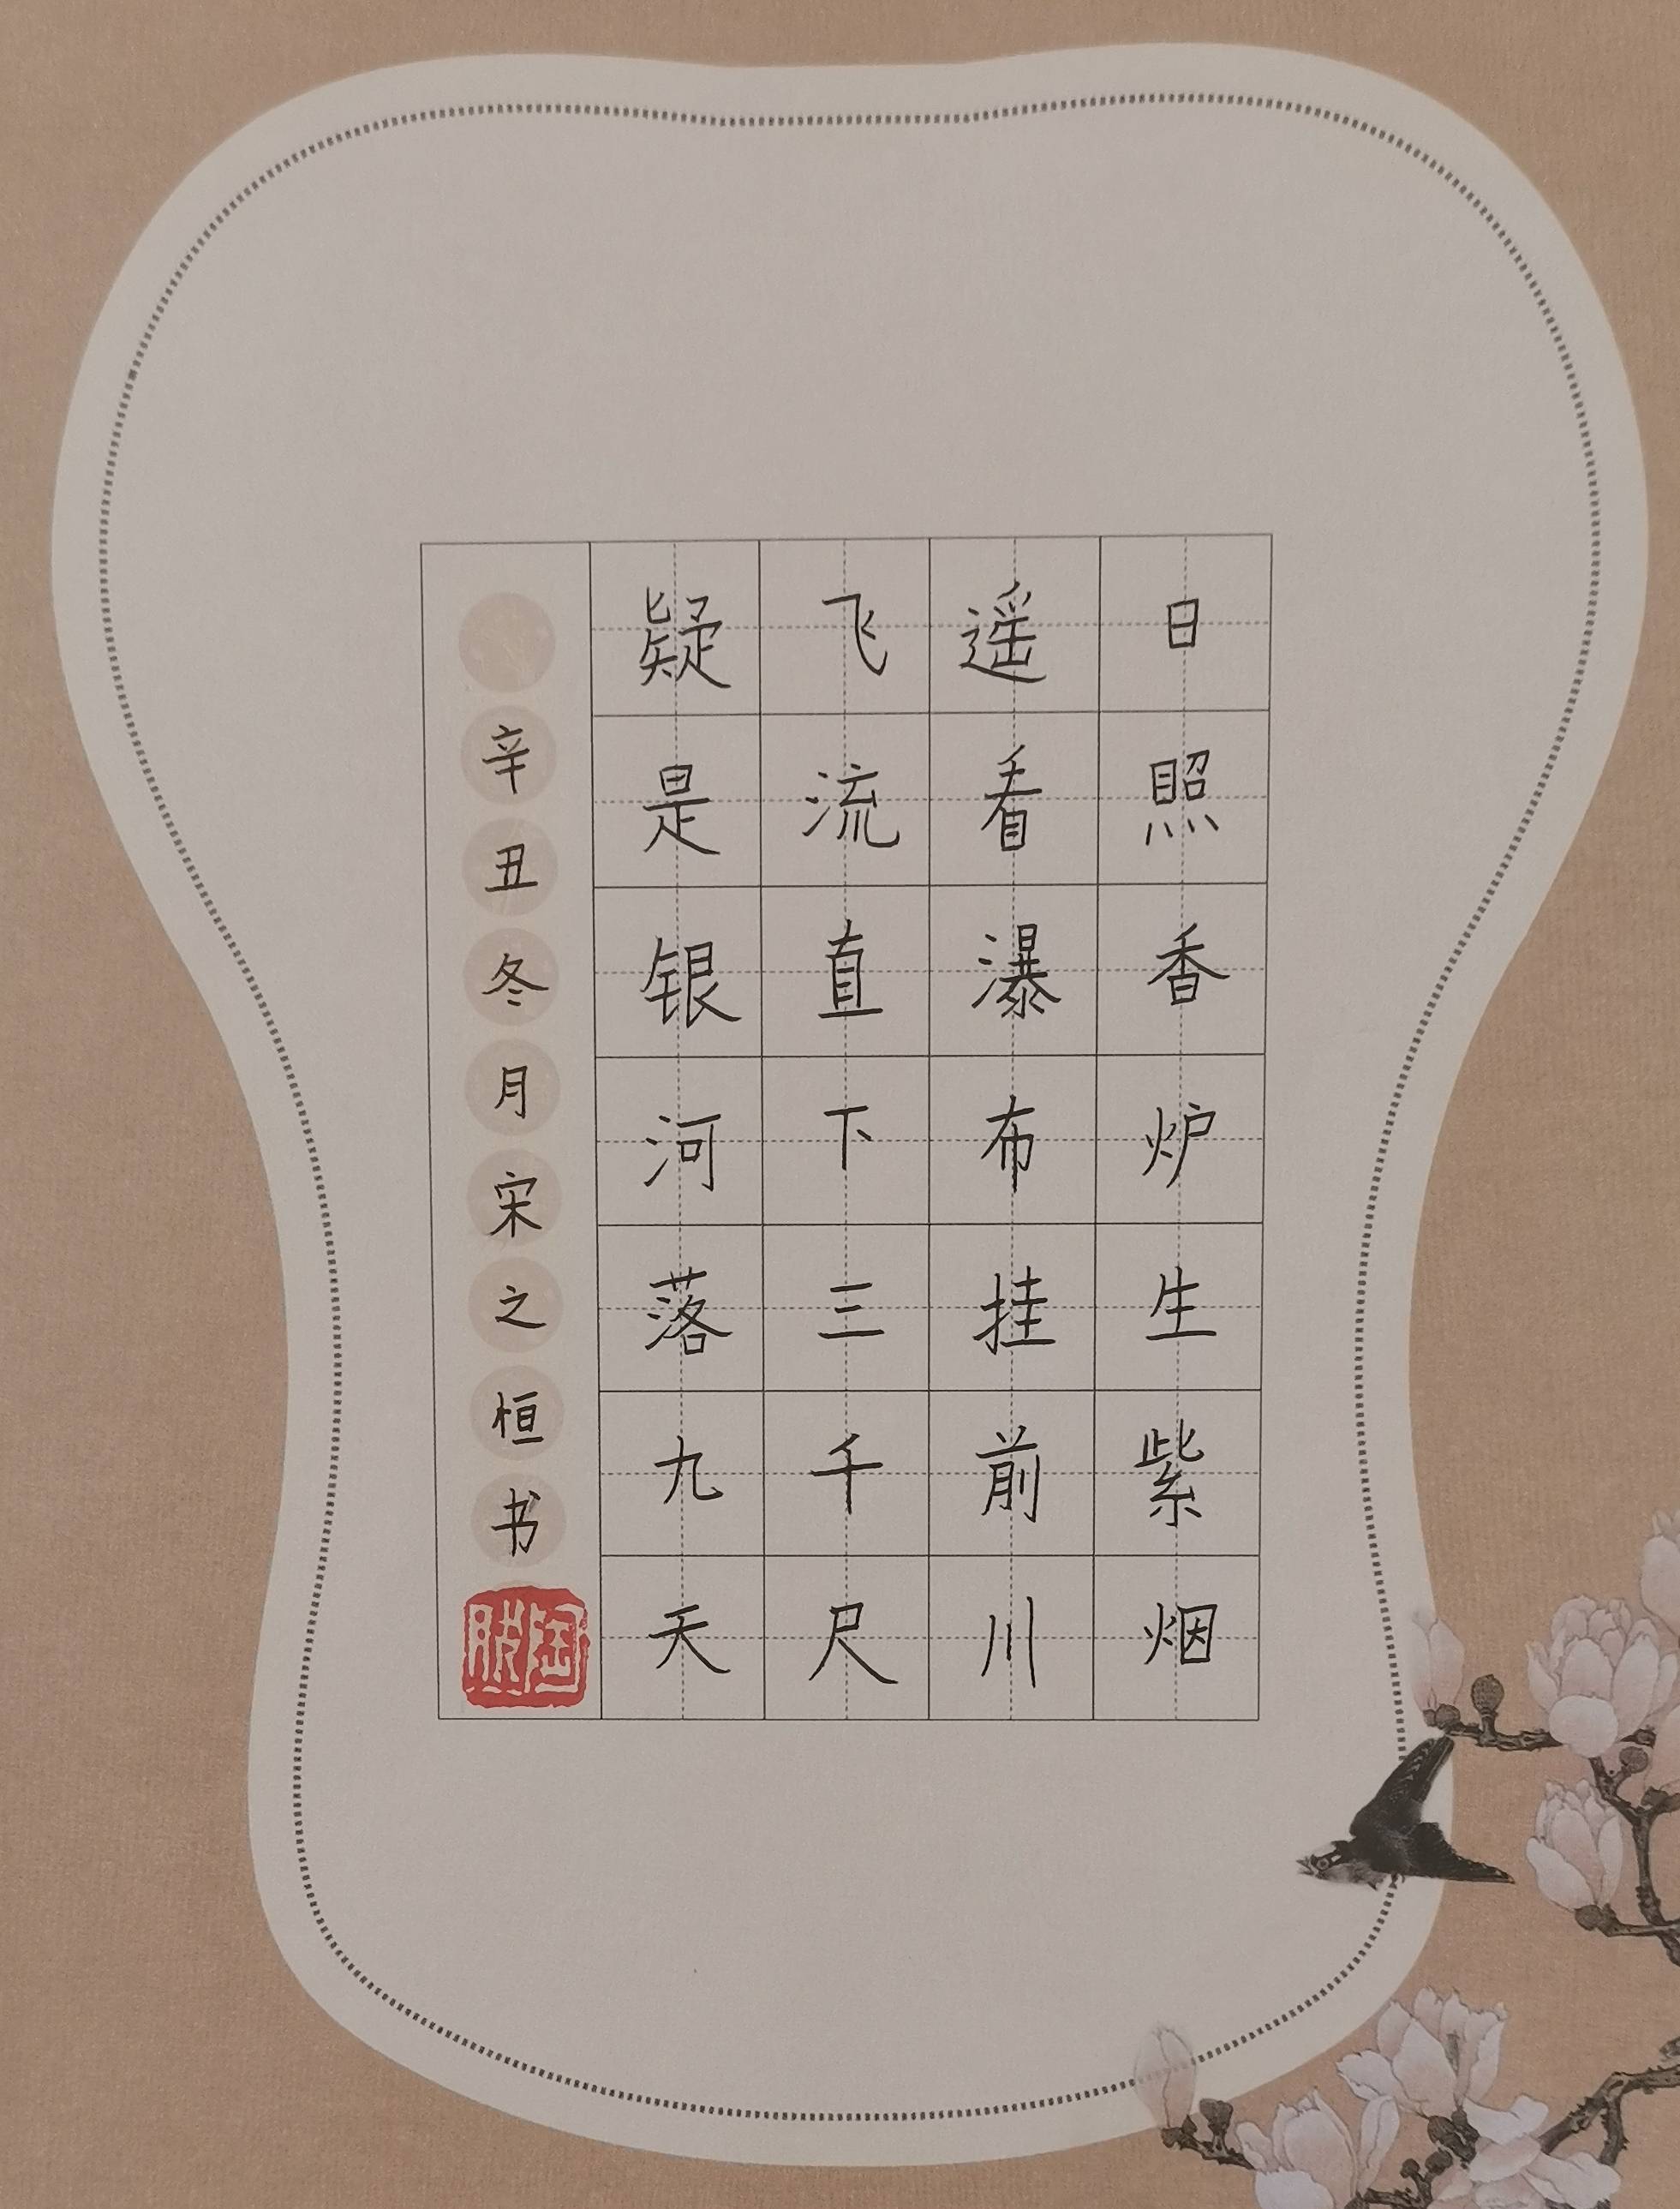 日照香炉生紫烟
遥看瀑布挂前川
飞流直下三千尺
疑是银河落九天
辛丑冬月宋之恒书